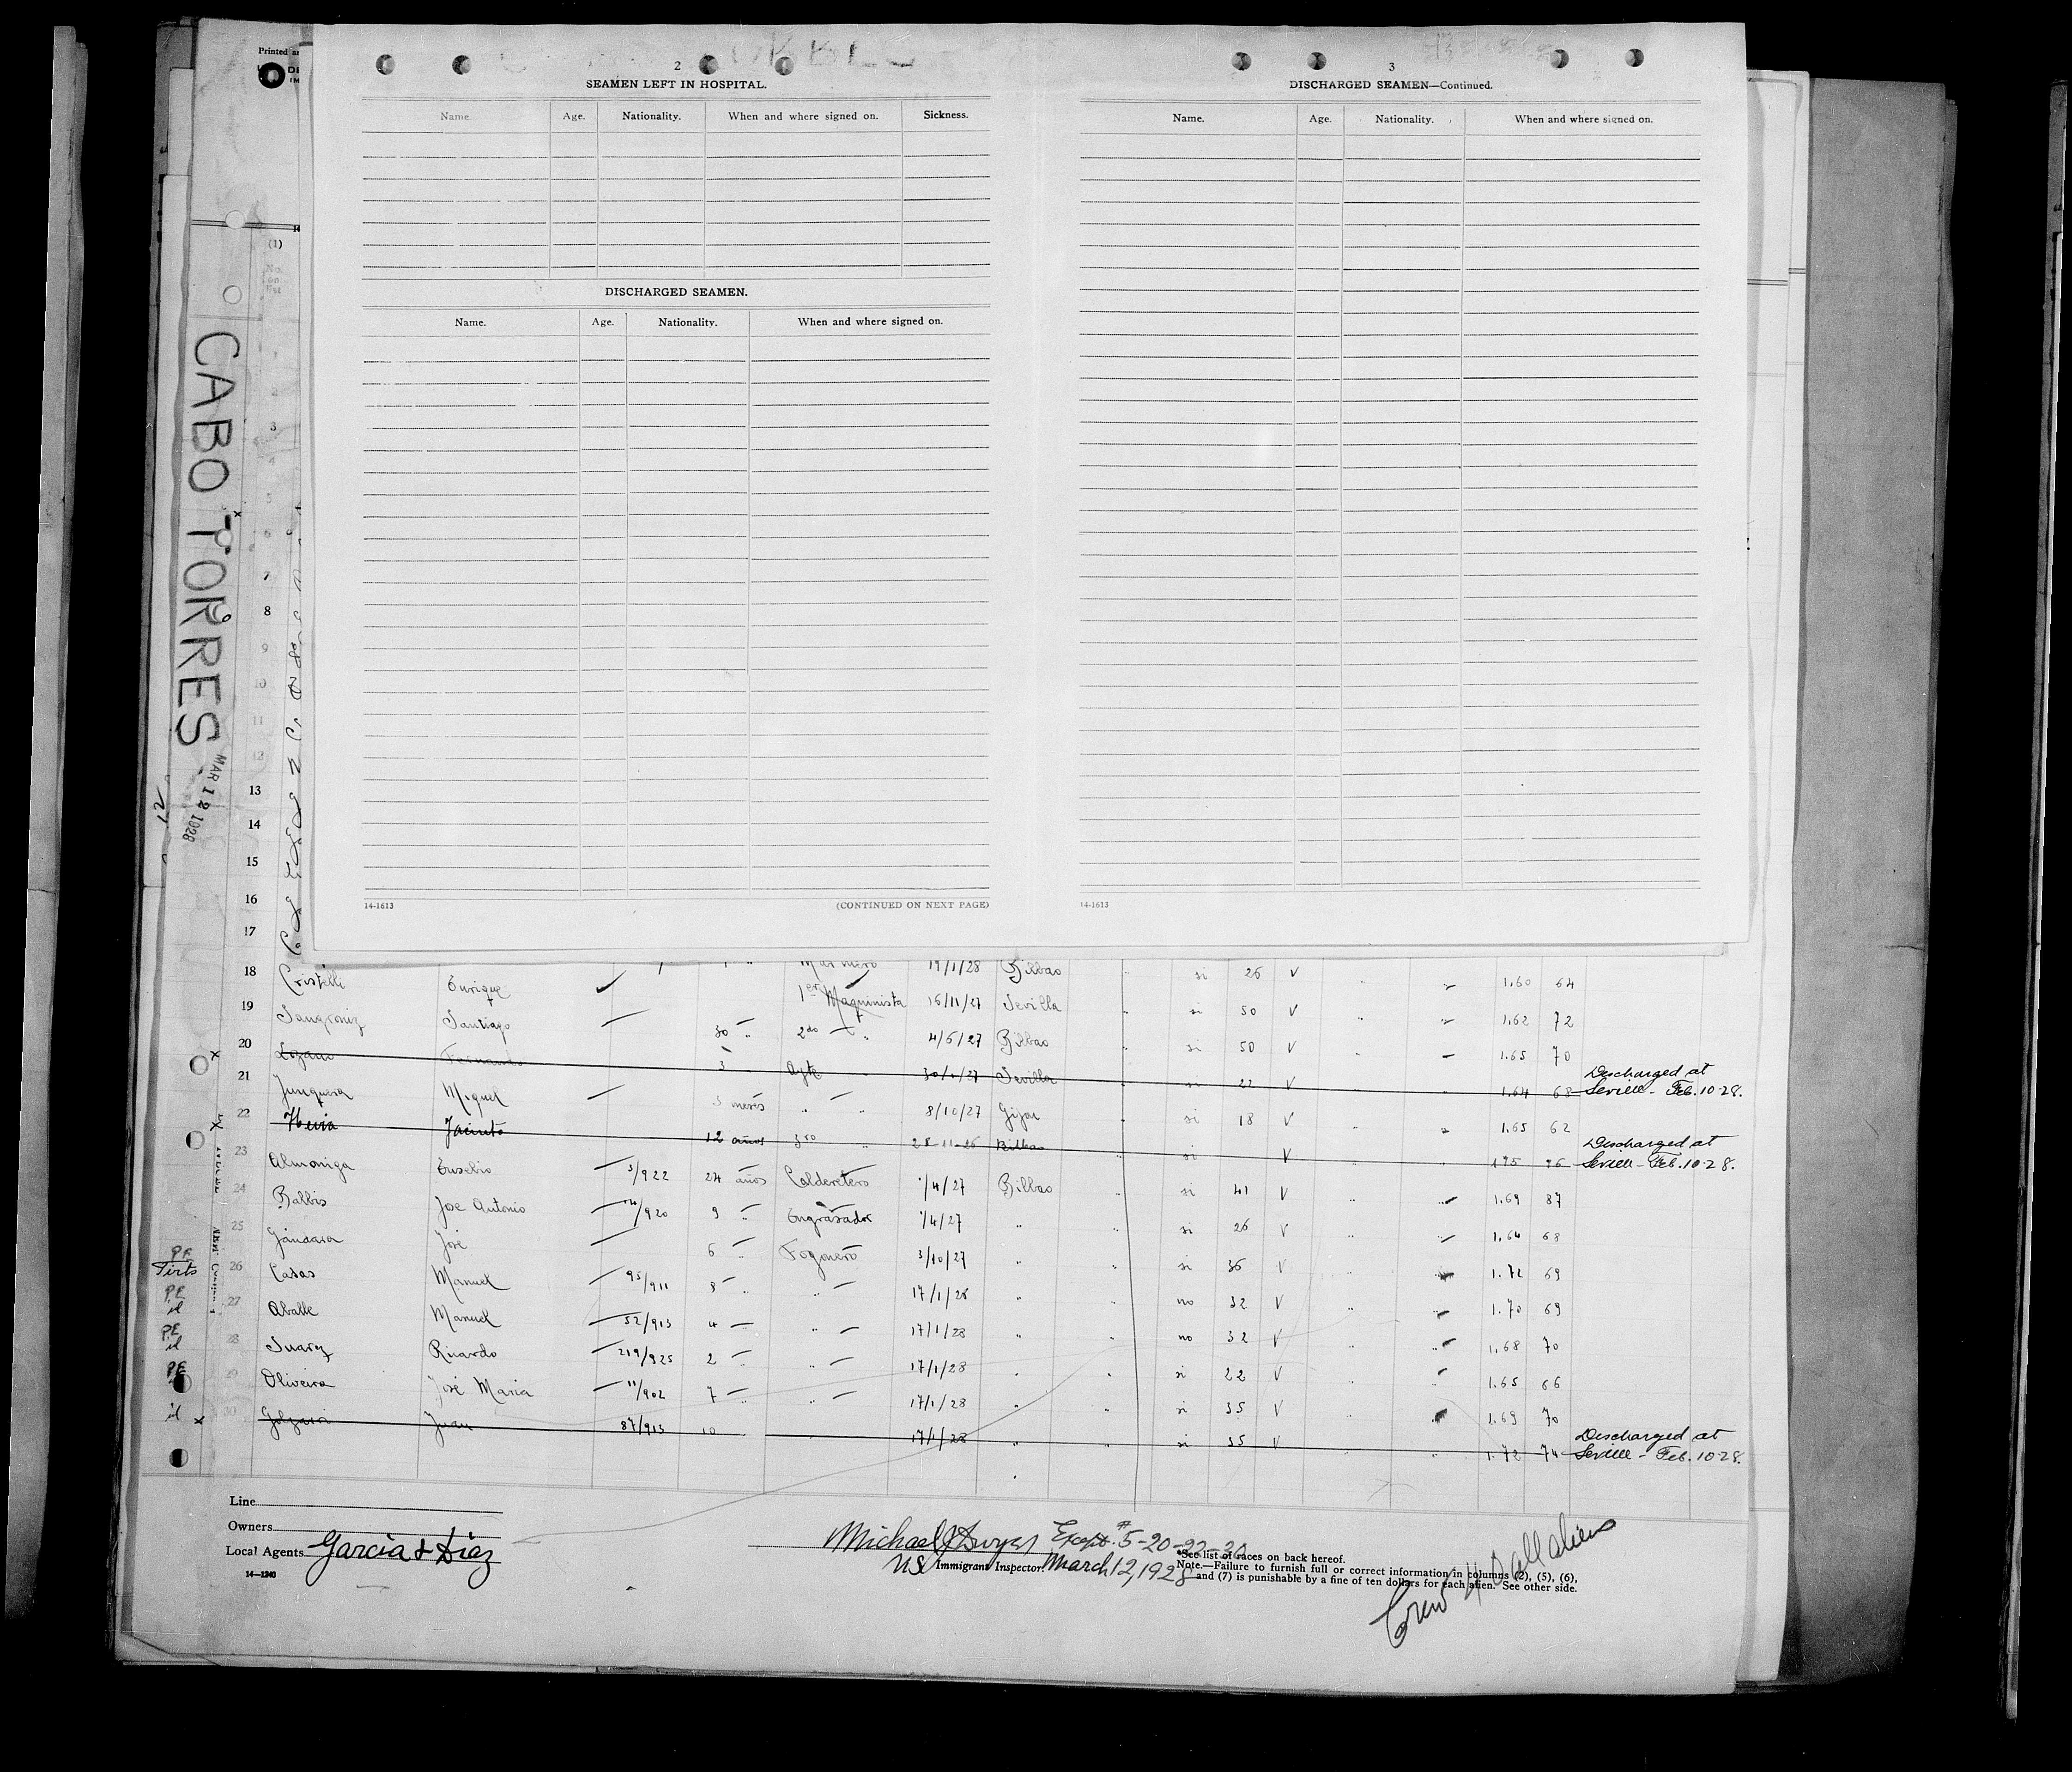 Printed
(1)
No.
on
list
CABO TORRES
MAR 12 1928
2
SEAMEN LEFT IN HOSPITAL.
Name. Age. Nationality. When and where signed on. Sickness.
DISCHARGED SEAMEN.
Name. Age. Nationality. When and where signed on.
14-1613 (CONTINUED ON NEXT PAGE)
3
DISCHARGED SEAMEN—Continued.
Name. Age. Nationality. When and where signed on.
14-1613
3
7
8
9
10
11
12
13
14
15
16
17
18 Cristelli Enrique Marinero 19/1/28 Bilbao si 26 V 1.60 64
19 Sangroniz Santiago 1er Maquinista 16/11/27 Sevilla si 50 V 1.62 72
20 Lozano Fernando 30 2do 4/5/27 Bilbao si 50 V 1.65 70
21 Junquera Miguel 3 Ayte Sevilla si 22 V 1.64 68 Discharged at Seville - Feb. 10-28.
22 Hevia Jacinto 3 meses 8/10/27 Gijon si 18 V 1.65 62
23 Almoniga Eusebio 12 años 3ro 28-11-26 Bilbao si V 1.75 96 Discharged at Seville - Feb. 10-28.
24 Balbis Jose Antonio 3/922 24 años Calderetero 1/4/27 Bilbao si 41 V 1.69 87
25 Gándara José 14/920 9 Engrasador 1/4/27 si 26 V 1.64 68
26 Casas Manuel 6 Fogonero 3/10/27 si 36 V 1.72 69
27 Aballe Manuel 95/911 8 17/1/28 no 32 V 1.70 69
28 Suarez Ricardo 52/913 4 17/1/28 no 32 V 1.68 70
29 Oliveira José Maria 219/925 2 17/1/28 si 22 V 1.65 66
30 Juan 11/902 7 17/1/28 si 35 V 1.69 70
87/913 10 17/1/28 si 35 V 1.72 74 Discharged at Seville - Feb. 10-28.
Line
Owners
Local Agents Garcia & Diaz
14—1240
Michael J Dwyer Except # 5-20-22-30
US Immigrant Inspector. March 12, 1928
*See list of races on back hereof.
Note.—Failure to furnish full or correct information in columns (2), (5), (6),
and (7) is punishable by a fine of ten dollars for each alien. See other side.